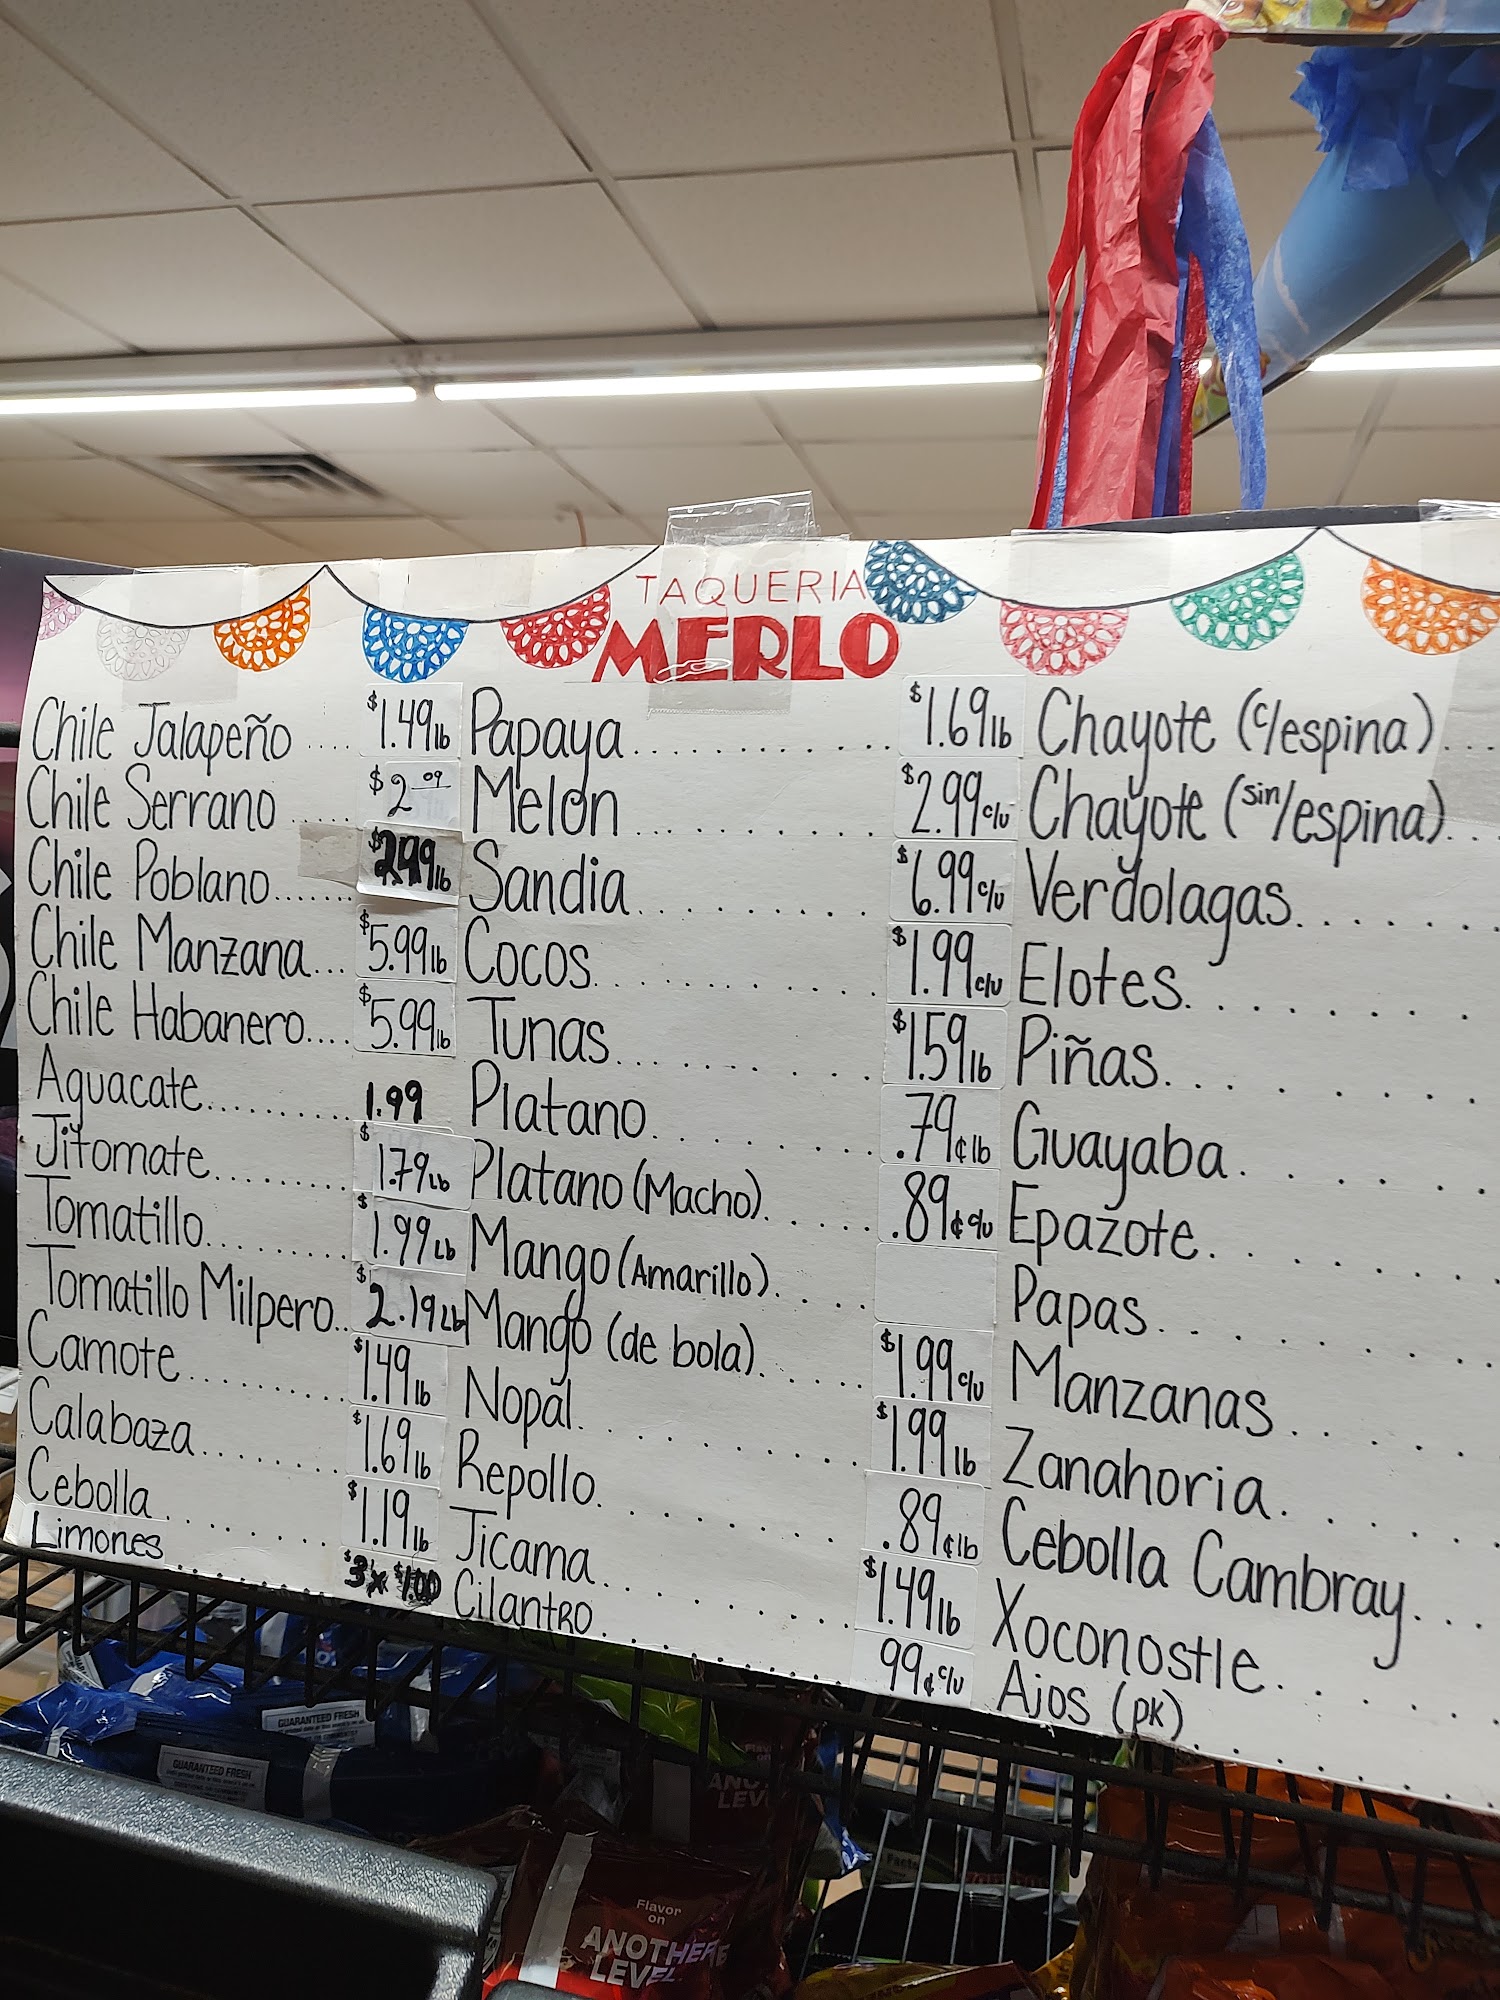 TAQUERIA
MERLO
Chile Jalapeño .... $1.49lb
Chile Serrano ...... $2.09
Chile Poblano....... $2.99lb
Chile Manzana... $5.99lb
Chile Habanero.... $5.99lb
Aguacate.......... 1.99
Jitomate.......... $1.79Lb
Tomatillo.......... $1.99Lb
Tomatillo Milpero... $2.19Lb
Camote.......... $1.49lb
Calabaza......... $1.69lb
Cebolla......... $1.19lb
Limones .......... 3x $1.00
Papaya............. $1.69lb
Melon ............ $2.99c/u
Sandia........... $6.99c/u
Cocos............ $1.99c/u
Tunas............ $1.59lb
Platano.......... .79¢lb
Platano (Macho)..... .89¢c/u
Mango (Amarillo).....
Mango (de bola)...... $1.99c/u
Nopal........... $1.99lb
Repollo.......... .89¢lb
Jicama.......... $1.49lb
Cilantro........... 99¢c/u
Chayote (c/espina)...
Chayote (sin/espina)..
Verdolagas.......
Elotes.........
Piñas..........
Guayaba........
Epazote.........
Papas..........
Manzanas.......
Zanahoria.......
Cebolla Cambray...
Xoconostle.......
Ajos (pk)
GUARANTEED FRESH
GUARANTEED FRESH
Flavor
on
ANOTHER
LEVEL